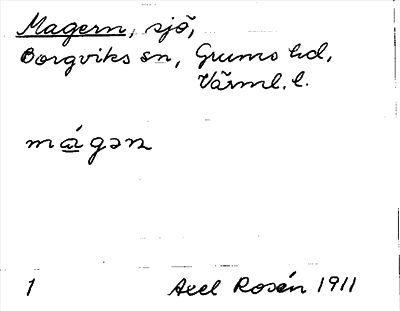 Magern, sjö,
Borgviks sn, Grums hd,
Värml. l.
mágən
1 Axel Rosén 1911